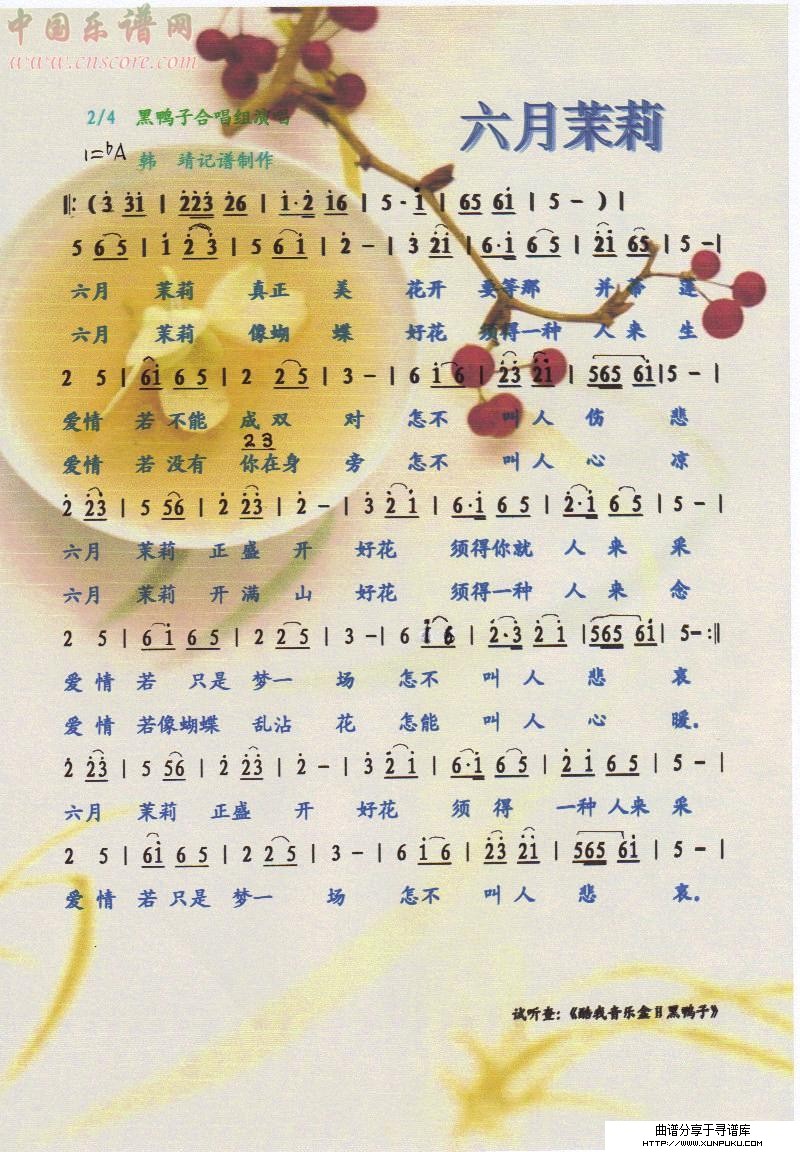 中国乐谱网
www.cnscore.com
六月茉莉
2/4 黑鸭子合唱组演唱
1=♭A 韩 靖记谱制作
‖: ( 3̇ 3̇1̇ | 2̇2̇3̇ 2̇6 | 1̇·2̇ 1̇6 | 5 · 1̇ | 65 61̇ | 5 － ) |
5 6 5 | 1̇ 2̇ 3̇ | 5 6 1̇ | 2̇ － | 3̇ 2̇1̇ | 6·1̇ 6 5 | 2̇1̇ 65 | 5 －|
六月 茉莉 真正 美 花开 要等那 并蒂 莲
六月 茉莉 像蝴 蝶 好花 须得一种 人 来 生
2 5 | 61̇ 6 5 | 2 2 5 | 3 － | 6 1̇ 6 | 2̇3̇ 2̇1̇ | 565 61̇ | 5 － |
爱情 若 不能 成 双 对 怎不 叫人 伤 悲
2 3
爱情 若 没有 你在身 旁 怎不 叫人 心 凉
2̇ 2̇3̇ | 5 56 | 2̇ 2̇3̇ | 2̇ － | 3̇ 2̇ 1̇ | 6·1̇ 6 5 | 2̇·1̇ 6 5 | 5 － |
六月 茉莉 正 盛 开 好花 须得你就 人 来 采
六月 茉莉 开 满 山 好花 须得一种 人 来 念
2 5 | 6 1̇ 6 5 | 2 2 5 | 3 －| 6 1̇ 6 | 2̇·3̇ 2̇ 1̇ |565 61̇| 5－:‖
爱 情 若 只是 梦一 场 怎不 叫 人 悲 哀
爱 情 若像蝴蝶 乱沾 花 怎能 叫 人 心 暖.
2̇ 2̇3̇ | 5 56 | 2̇ 2̇3̇ | 2̇ － | 3̇ 2̇ 1̇ | 6·1̇ 6 5 | 2̇ 1̇ 6 5 | 5 － |
六月 茉莉 正盛 开 好花 须 得 一种 人来 采
2 5 | 61̇ 6 5 | 2 2 5 | 3 － | 6 1̇ 6 | 2̇3̇ 2̇1̇ | 565 61̇ | 5 － |
爱 情 若 只是 梦一 场 怎不 叫人 悲 哀.
试听查:《酷我音乐盒目黑鸭子》
曲谱分享于寻谱库
HTTP://WWW.XUNPUKU.COM